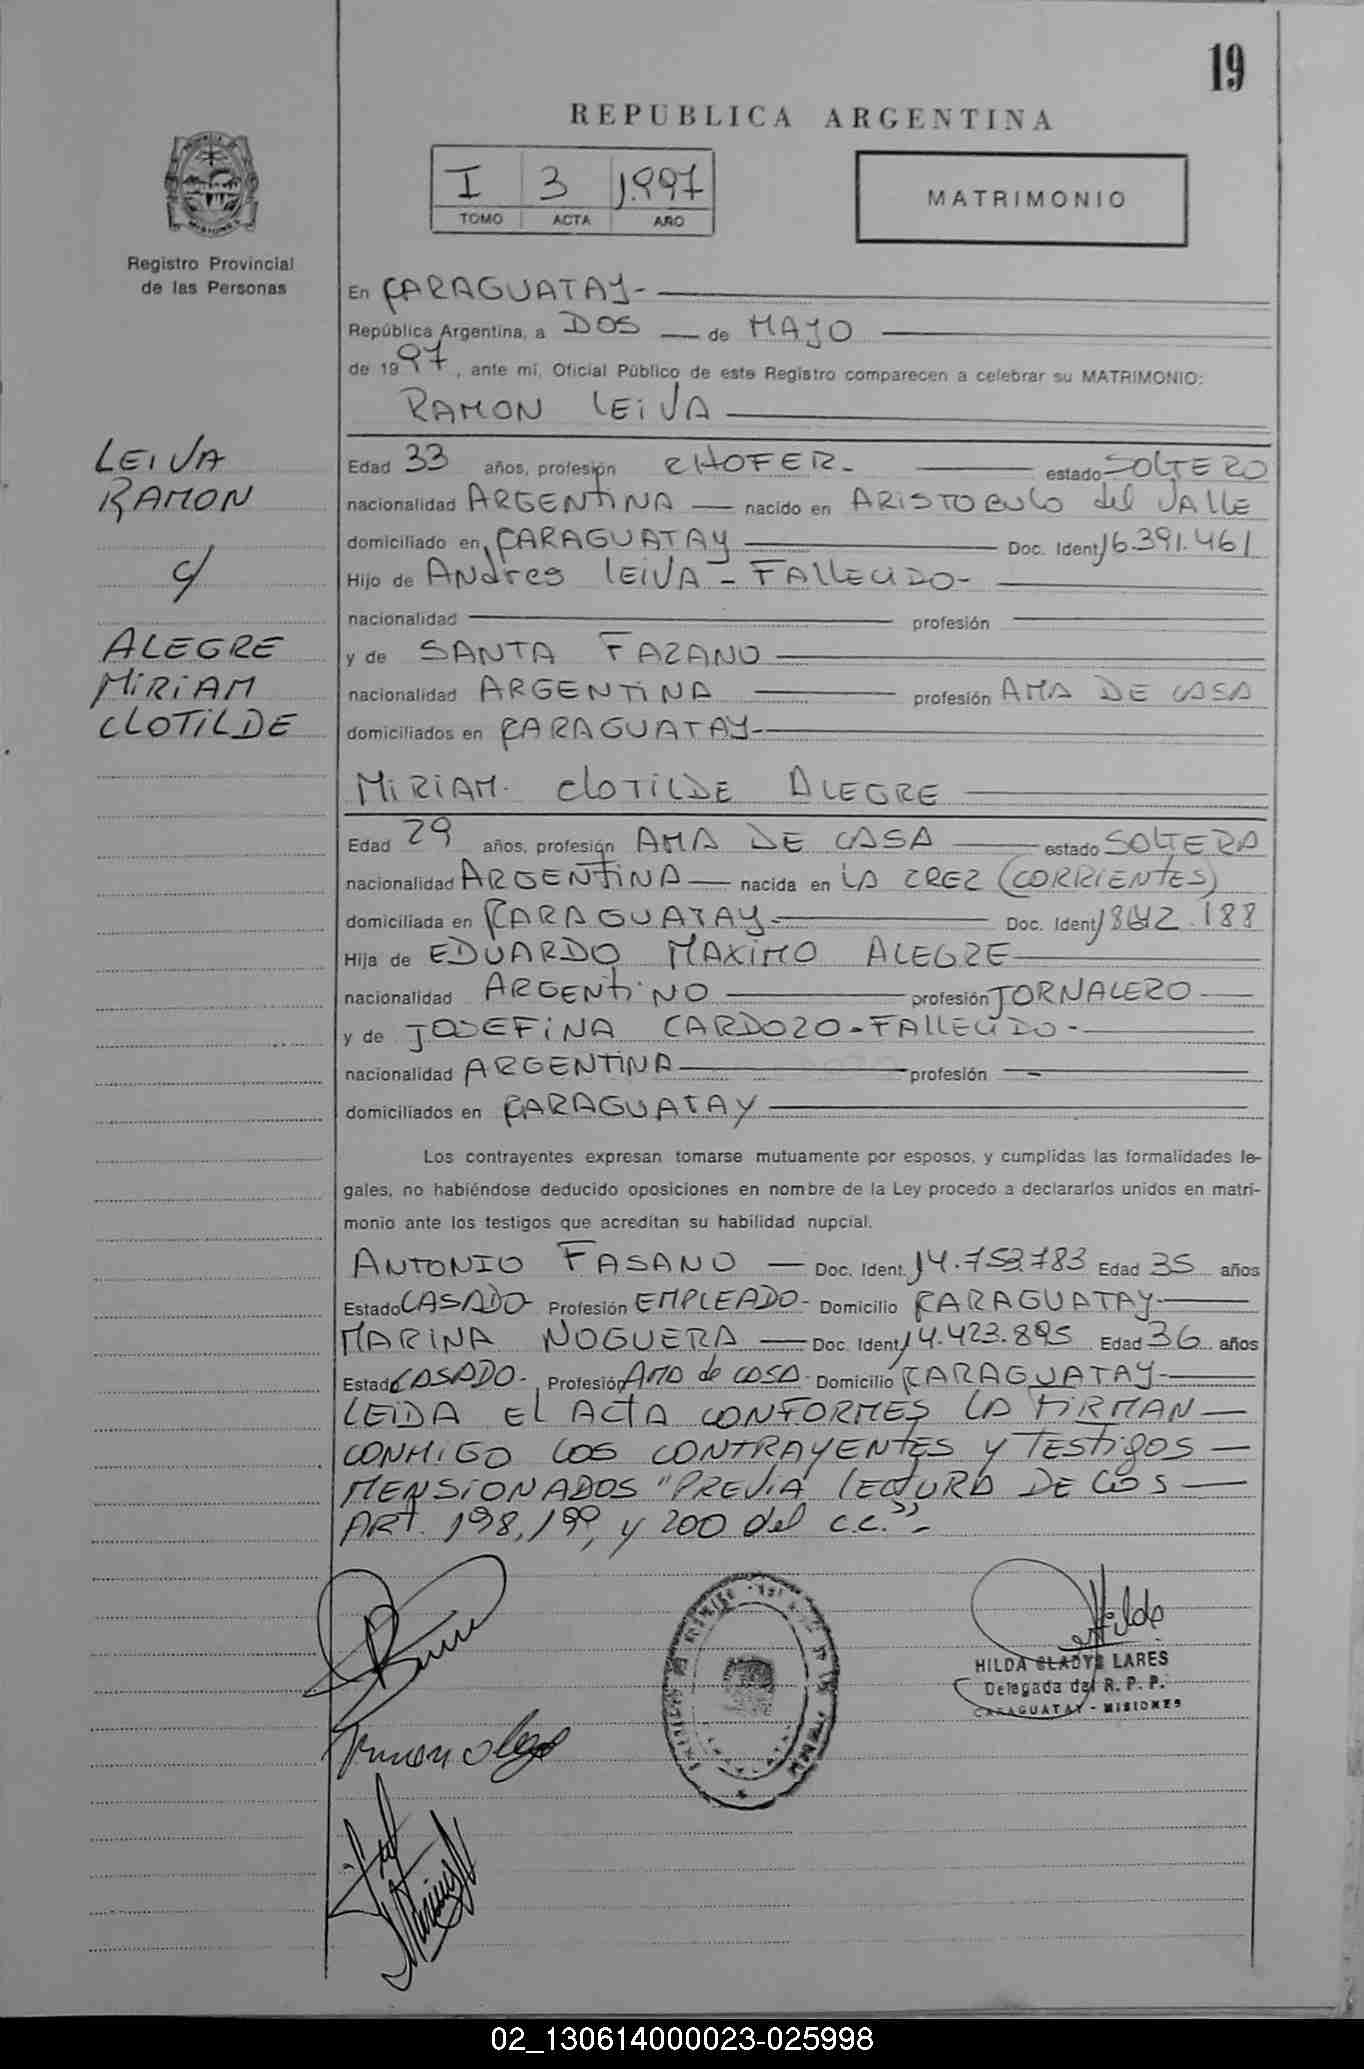 19
REPUBLICA ARGENTINA
I 3 1.997
TOMO ACTA AÑO
MATRIMONIO
MISIONES
Registro Provincial
de las Personas
En CARAGUATAY-
República Argentina, a DOS de MAYO
de 1997, ante mí, Oficial Público de este Registro comparecen a celebrar su MATRIMONIO:
RAMON LEIVA
LEIVA
RAMON
c/
ALEGRE
MIRIAM
CLOTILDE
Edad 33 años, profesión CHOFER- estado SOLTERO
nacionalidad ARGENTINA nacido en ARISTOBULO del VALLE
domiciliado en CARAGUATAY Doc. Ident. 16.391.461
Hijo de ANdres LEIVA - FALLECIDO-
nacionalidad profesión
y de SANTA FAZANO
nacionalidad ARGENTINA profesión AMA DE CASA
domiciliados en CARAGUATAY-
MIRIAM- CLOTILDE ALEGRE
Edad 29 años, profesión AMA DE CASA estado SOLTERA
nacionalidad ARGENTINA nacida en LA CREZ (CORRIENTES)
domiciliada en CARAGUATAY- Doc. Ident. .188
Hija de EDUARDO MAXIMO ALEGRE
nacionalidad ARGENTINO profesión JORNALERO
y de JOSEFINA CARDOZO-FALLECIDO-
nacionalidad ARGENTINA profesión -
domiciliados en CARAGUATAY
Los contrayentes expresan tomarse mutuamente por esposos, y cumplidas las formalidades le-
gales, no habiéndose deducido oposiciones en nombre de la Ley procedo a declararlos unidos en matri-
monio ante los testigos que acreditan su habilidad nupcial.
ANTONIO FASANO Doc. Ident. 14.753.783 Edad 35 años
Estado CASADO- Profesión EMPLEADO- Domicilio CARAGUATAY-
MARINA NOGUERA Doc. Ident. 14.423.895 Edad 36 años
Estado CASADO- Profesión AMA de CASA- Domicilio CARAGUATAY-
LEIDA EL ACTA CONFORMES LA FIRMAN
CONMIGO LOS CONTRAYENTES y TESTIGOS
MENSIONADOS "PREVIA LECTURA DE LOS
ART. 198, 199, y 200 del c.c."-
Hilda
HILDA GLADYS LARES
Delegada del R. P. P.
CARAGUATAY - MISIONES
02_130614000023-025998